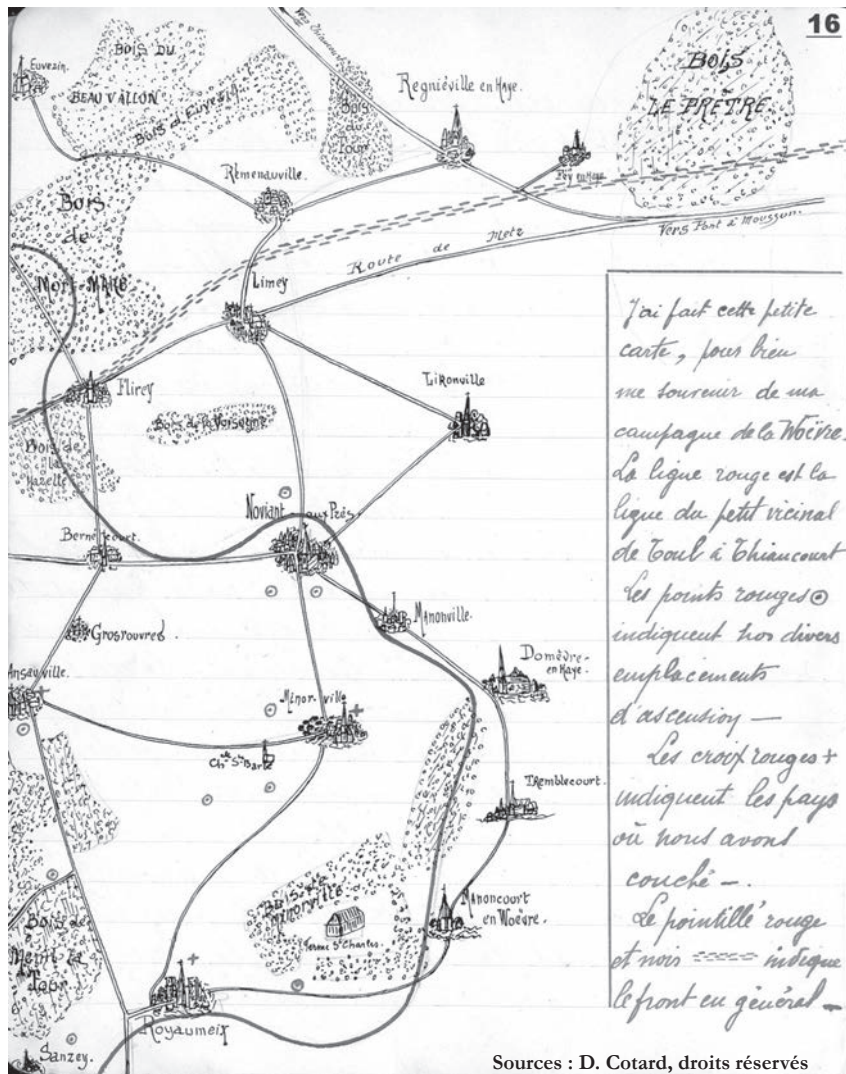 16
Euvezin.
BOIS DU
BEAU VALLON
Bois d'Euvezin
Bois
du
Four
Regniéville en Haye.
BOIS
LE PRETRE
Remenauville.
Fey en Haye
Vers Pont à Mousson.
Route de Metz
Bois
de
Mort-MARE
Limey
Flirey
Lironville
Bois de la Voisogne
Bois de
la
Hazelle
Noviant aux Prés.
Bernécourt.
Manonville.
Grosrouvres
Domèvre
en Haye.
Ansauville.
Minorville
Ch.lle Ste Barbe
Tremblecourt.
Bois de
Minorville
Ferme St Charles.
Manoncourt
en Woëvre.
Bois de
Menil la
Tour
Royaumeix
Sanzey.
J'ai fait cette petite
carte, pour bien
me souvenir de ma
campagne de la Woëvre.
La ligne rouge est la
ligne du petit vicinal
de Toul à Thiaucourt
Les points rouges
indiquent nos divers
emplacements
d'ascension —
Les croix rouges +
indiquent les pays
où nous avons
couché —.
Le pointillé rouge
et noir indique
le front en général —
Sources : D. Cotard, droits réservés